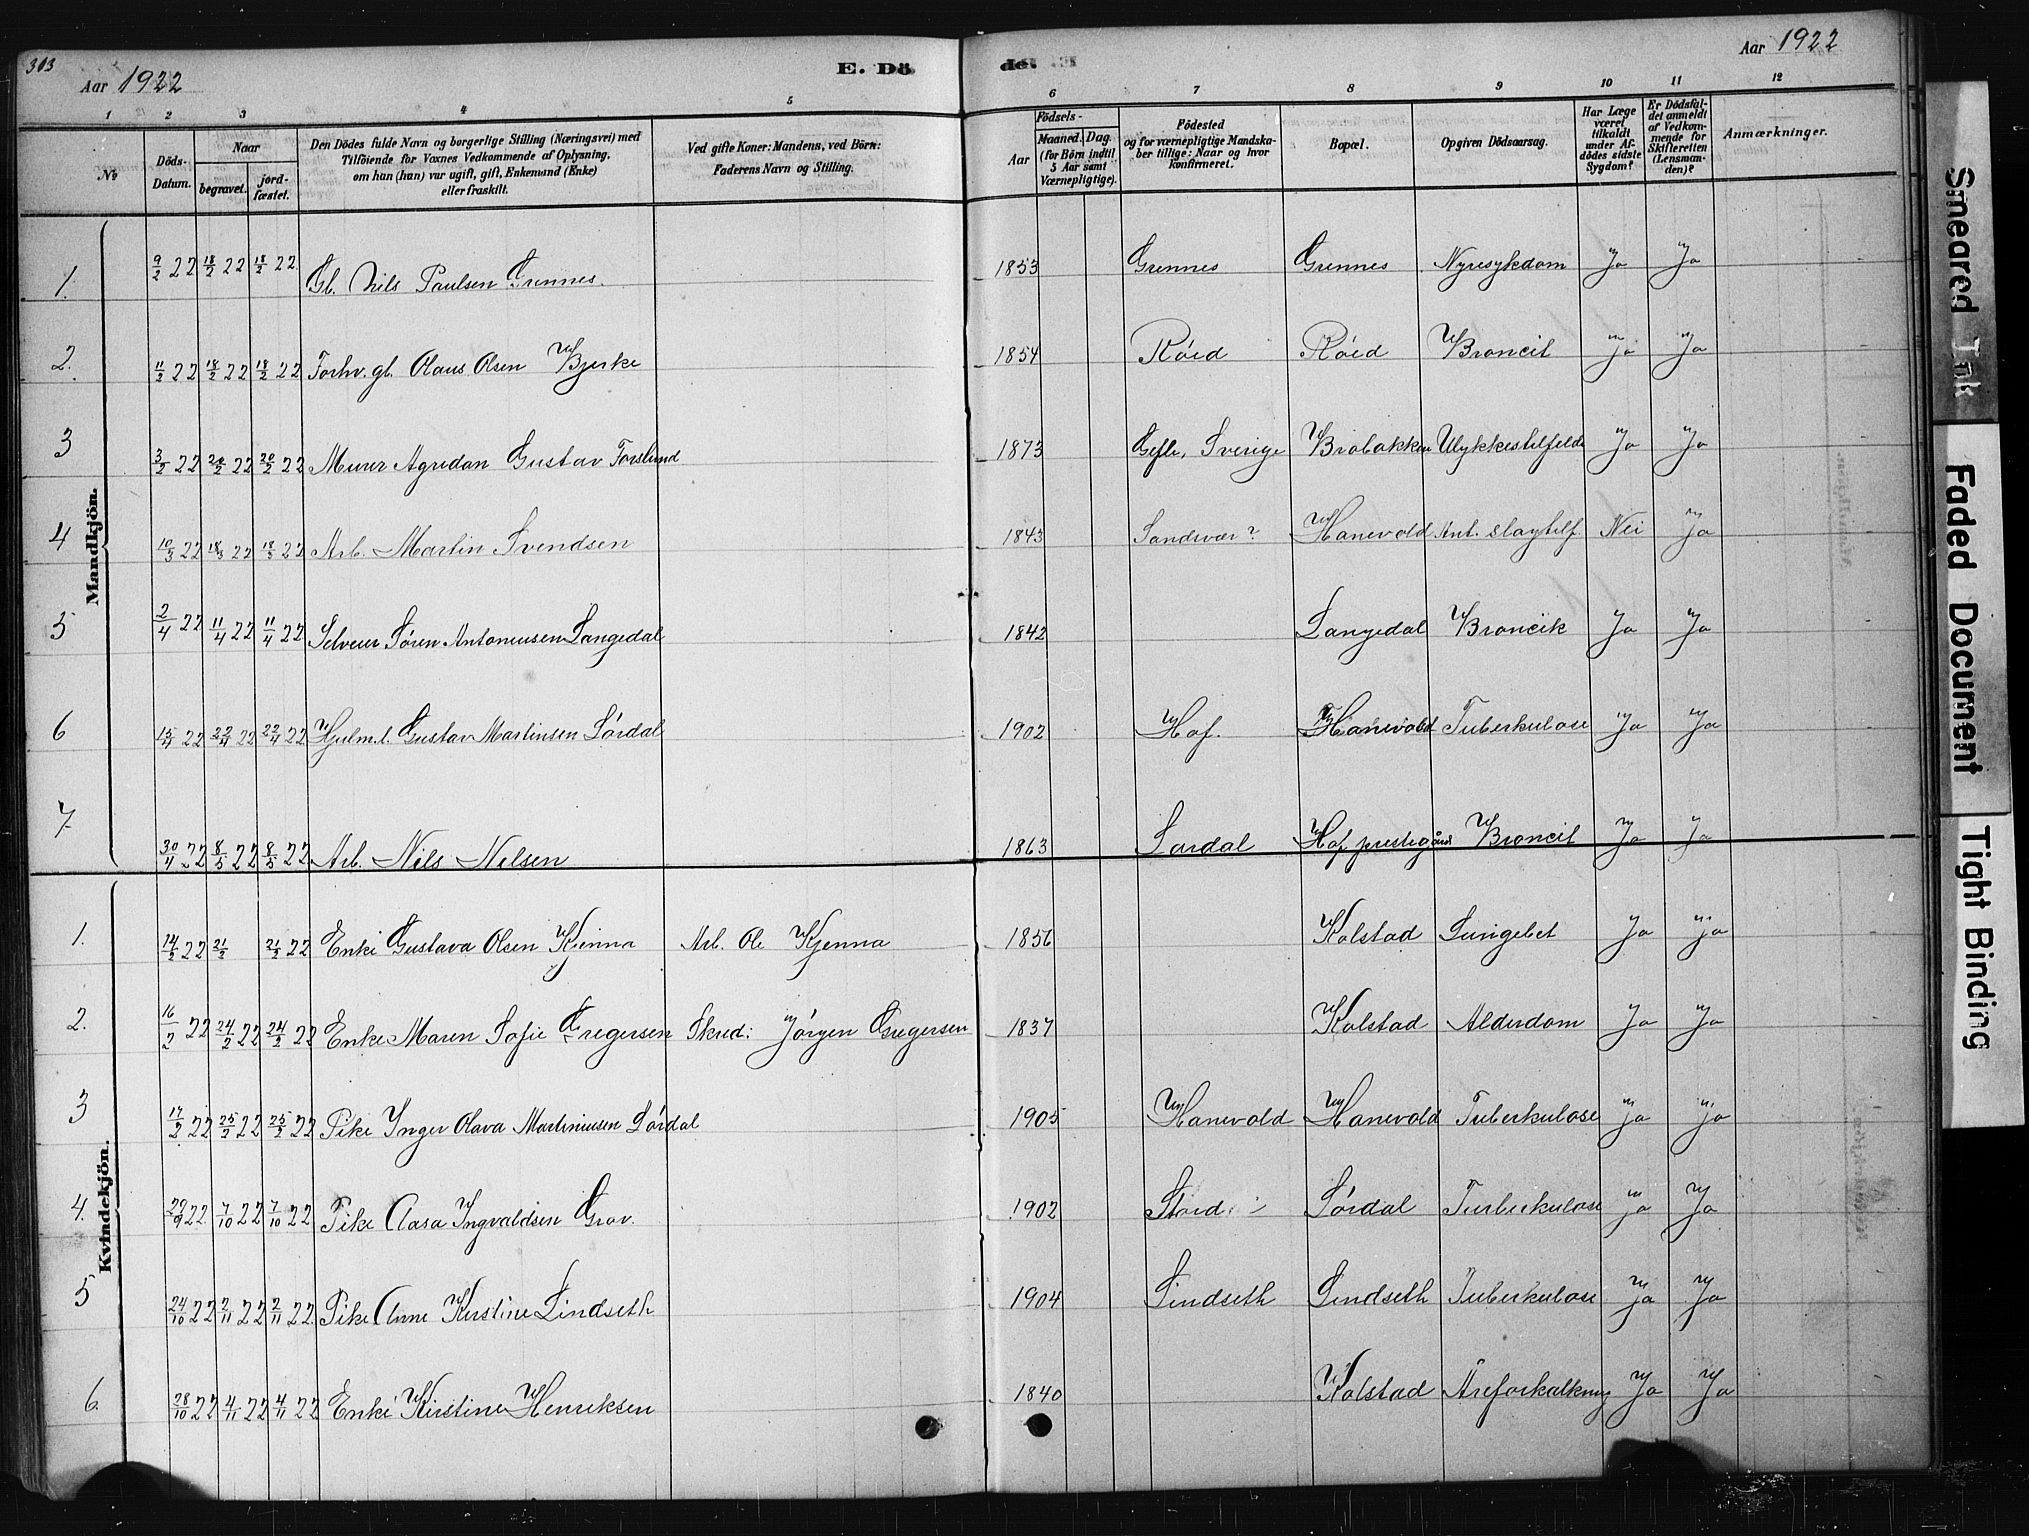 303
Aar 1922
E. Dö
de.
Aar 1922
1 2 3 4 5 6 7 8 9 10 11 12
No
Döds-Datum.
Naar
begravet.
jord-fæstet.
Den Dödes fulde Navn og borgerlige Stilling (Næringsvei) med
Tilföiende for Voxnes Vedkommende af Oplysning,
om hun (han) var ugift, gift, Enkemand (Enke)
eller fraskilt.
Ved gifte Koner: Mandens, ved Börn:
Faderens Navn og Stilling.
Födsels-
Aar
Maaned. Dag.
(for Börn indtil
5 Aar samt
Værnepligtige).
Födested
og for værnepligtige Mandska-
ber tillige: Naar og hvor
konfirmeret.
Bopæl.
Opgiven Dödsaarsag.
Har Læge
været
tilkaldt
under Af-
dödes sidste
Sygdom?
Er Dödsfal-
det anmeldt
af Vedkom-
mende for
Skifteretten
(Lensman-
den)?
Anmærkninger.
Mandkjön.
1. 9/2 22 18/2 22 18/2 22 Gb. Nils Paulsen Grennes. 1853 Grennes Grennes Nyresykdom Ja Ja
2. 11/2 22 18/2 22 18/2 22 Forhv. gb. Olaus Olsen Bjerke 1854 Röed Röed Broncit Ja Ja
3 3/2 22 20/2 22 20/2 22 Murer Agredan Gustav Forslund 1873 Gefle, Sverige Brobakken Ulykkestilfelde Ja Ja
4 10/3 22 18/3 22 18/3 22 Arb. Martin Svendsen 1843 Sandsvær? Hanevold Ant. slagtilf. Nei Ja
5 2/4 22 11/4 22 11/4 22 Selveier Sören Antoniusen Langedal 1842 Langedal Broncit Ja Ja
6 15/4 22 22/4 22 22/4 22 Hjulm.l. Gustav Martinsen Sørdal 1902 Hof. Hanevold Tuberkulose Ja Ja
7. 30/4 22 8/5 22 8/5 22 Arb. Nils Nilsen 1863 Lardal Hof prestegård Broncit Ja Ja
Kvindekjön.
1. 14/2 22 21/2 21/2 22 Enke Gustava Olsen Kjenna Arb. Ole Kjenna 1856 Kolstad Lungebet Ja Ja
2. 16/2 22 24/2 22 24/2 22 Enke Maren Sofie Gregersen Skred: Jørgen Gregersen 1837 Kolstad Alderdom Ja Ja
3 17/2 22 25/2 22 25/2 22 Pike Inger Olava Martiniusen Sördal 1905 Hanevold Hanevold Tuberkulose Ja Ja
4. 29/9 22. 7/10 22 7/10 22 Pike Aasa Ingvaldsen Grav. 1902 Stord Sördal Tuberkulose Ja Ja
5 24/10 22 2/11 22 2/11 22. Pike Anne Kirstine Lindseth 1904 Lindseth Lindseth Tuberkulose Ja Ja
6. 28/10 22 4/11 22 4/11 22 Enke Kirstine Henriksen 1840 Kolstad Åreforkalkning Ja Ja
Smeared Ink
Faded Document
Tight Binding